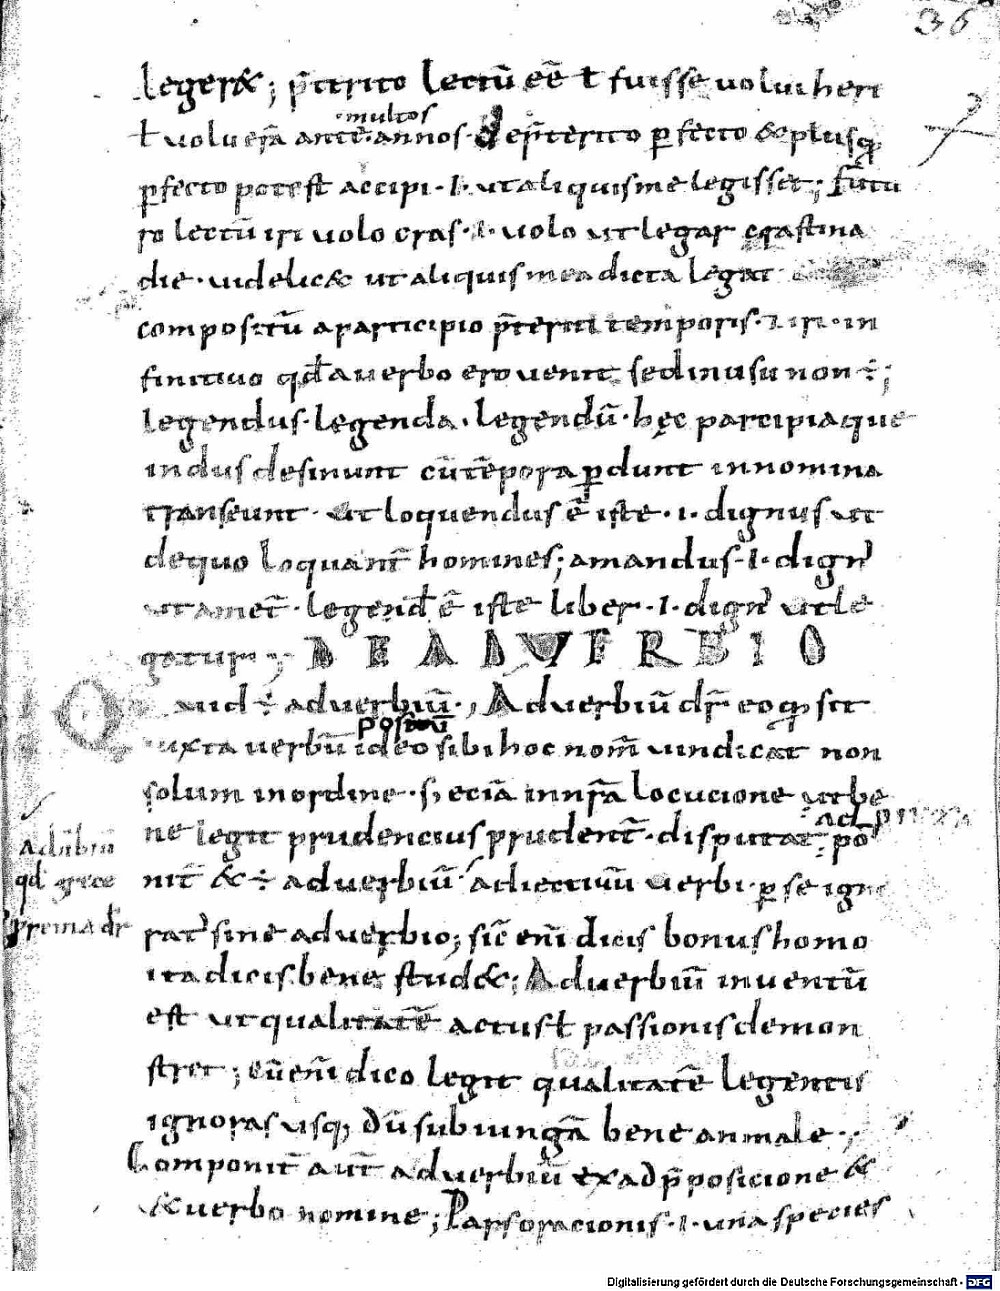 36
leger&; p̄terito lectū eē ł fuisse volui heri
·multos
ł volueřa ante·annos· de p̄terito ꝑfecto & plusꝗ
ꝑfecto potest accipi·i· ut aliquis me legisset; futu
ro lectū iri volo cras·i· volo ut legar crastina
die· videlic& ut aliquis mea dicta legat
compositū a participio p̄teriti temporis· & iri· in
finitivo qđ a verbo eo venit sed in usu non ÷;
legendus· legenda· legendū· hęc participia que
in dus desinunt cū tēpora ꝑdunt in nomina
transeunt· ut loquendus ē iste·i· dignus ut
de quo loquanť homines; amandus·i· dign'
ut ameť· legend' ē iste liber·i· dign' ut le
gatur;
DE ADVERBIO
Quid ÷ adverbiū; Adverbiū dr̄ eo ꝙ sit
positū
iuxta verbū ideo sibi hoc nom̄ vindicat non
solum in ordine· s; eciā in nr̄a locucione ut be
ne legit prudencius prudent̄· disputat; pō
nit̄ & ÷ adverbiū adiectivū verbi· ꝑ se igno
rat' sine adverbio; sic̄ eni dicis bonus homo
ita dicis bene stud&; Adverbiū inventū
est ut qualitatē actus ł passionis demon
stret; cū eni dico legit qualitatē legentis
ignoras usq; dū subiungā bene an male·;
Componit̄ aut̄ adverbiū ex ad p̄posicione &
& verbo nomine; Pars oracionis·i· una species
Adūbiū
qđ grece
dr̄
Digitalisierung gefördert durch die Deutsche Forschungsgemeinschaft - DFG